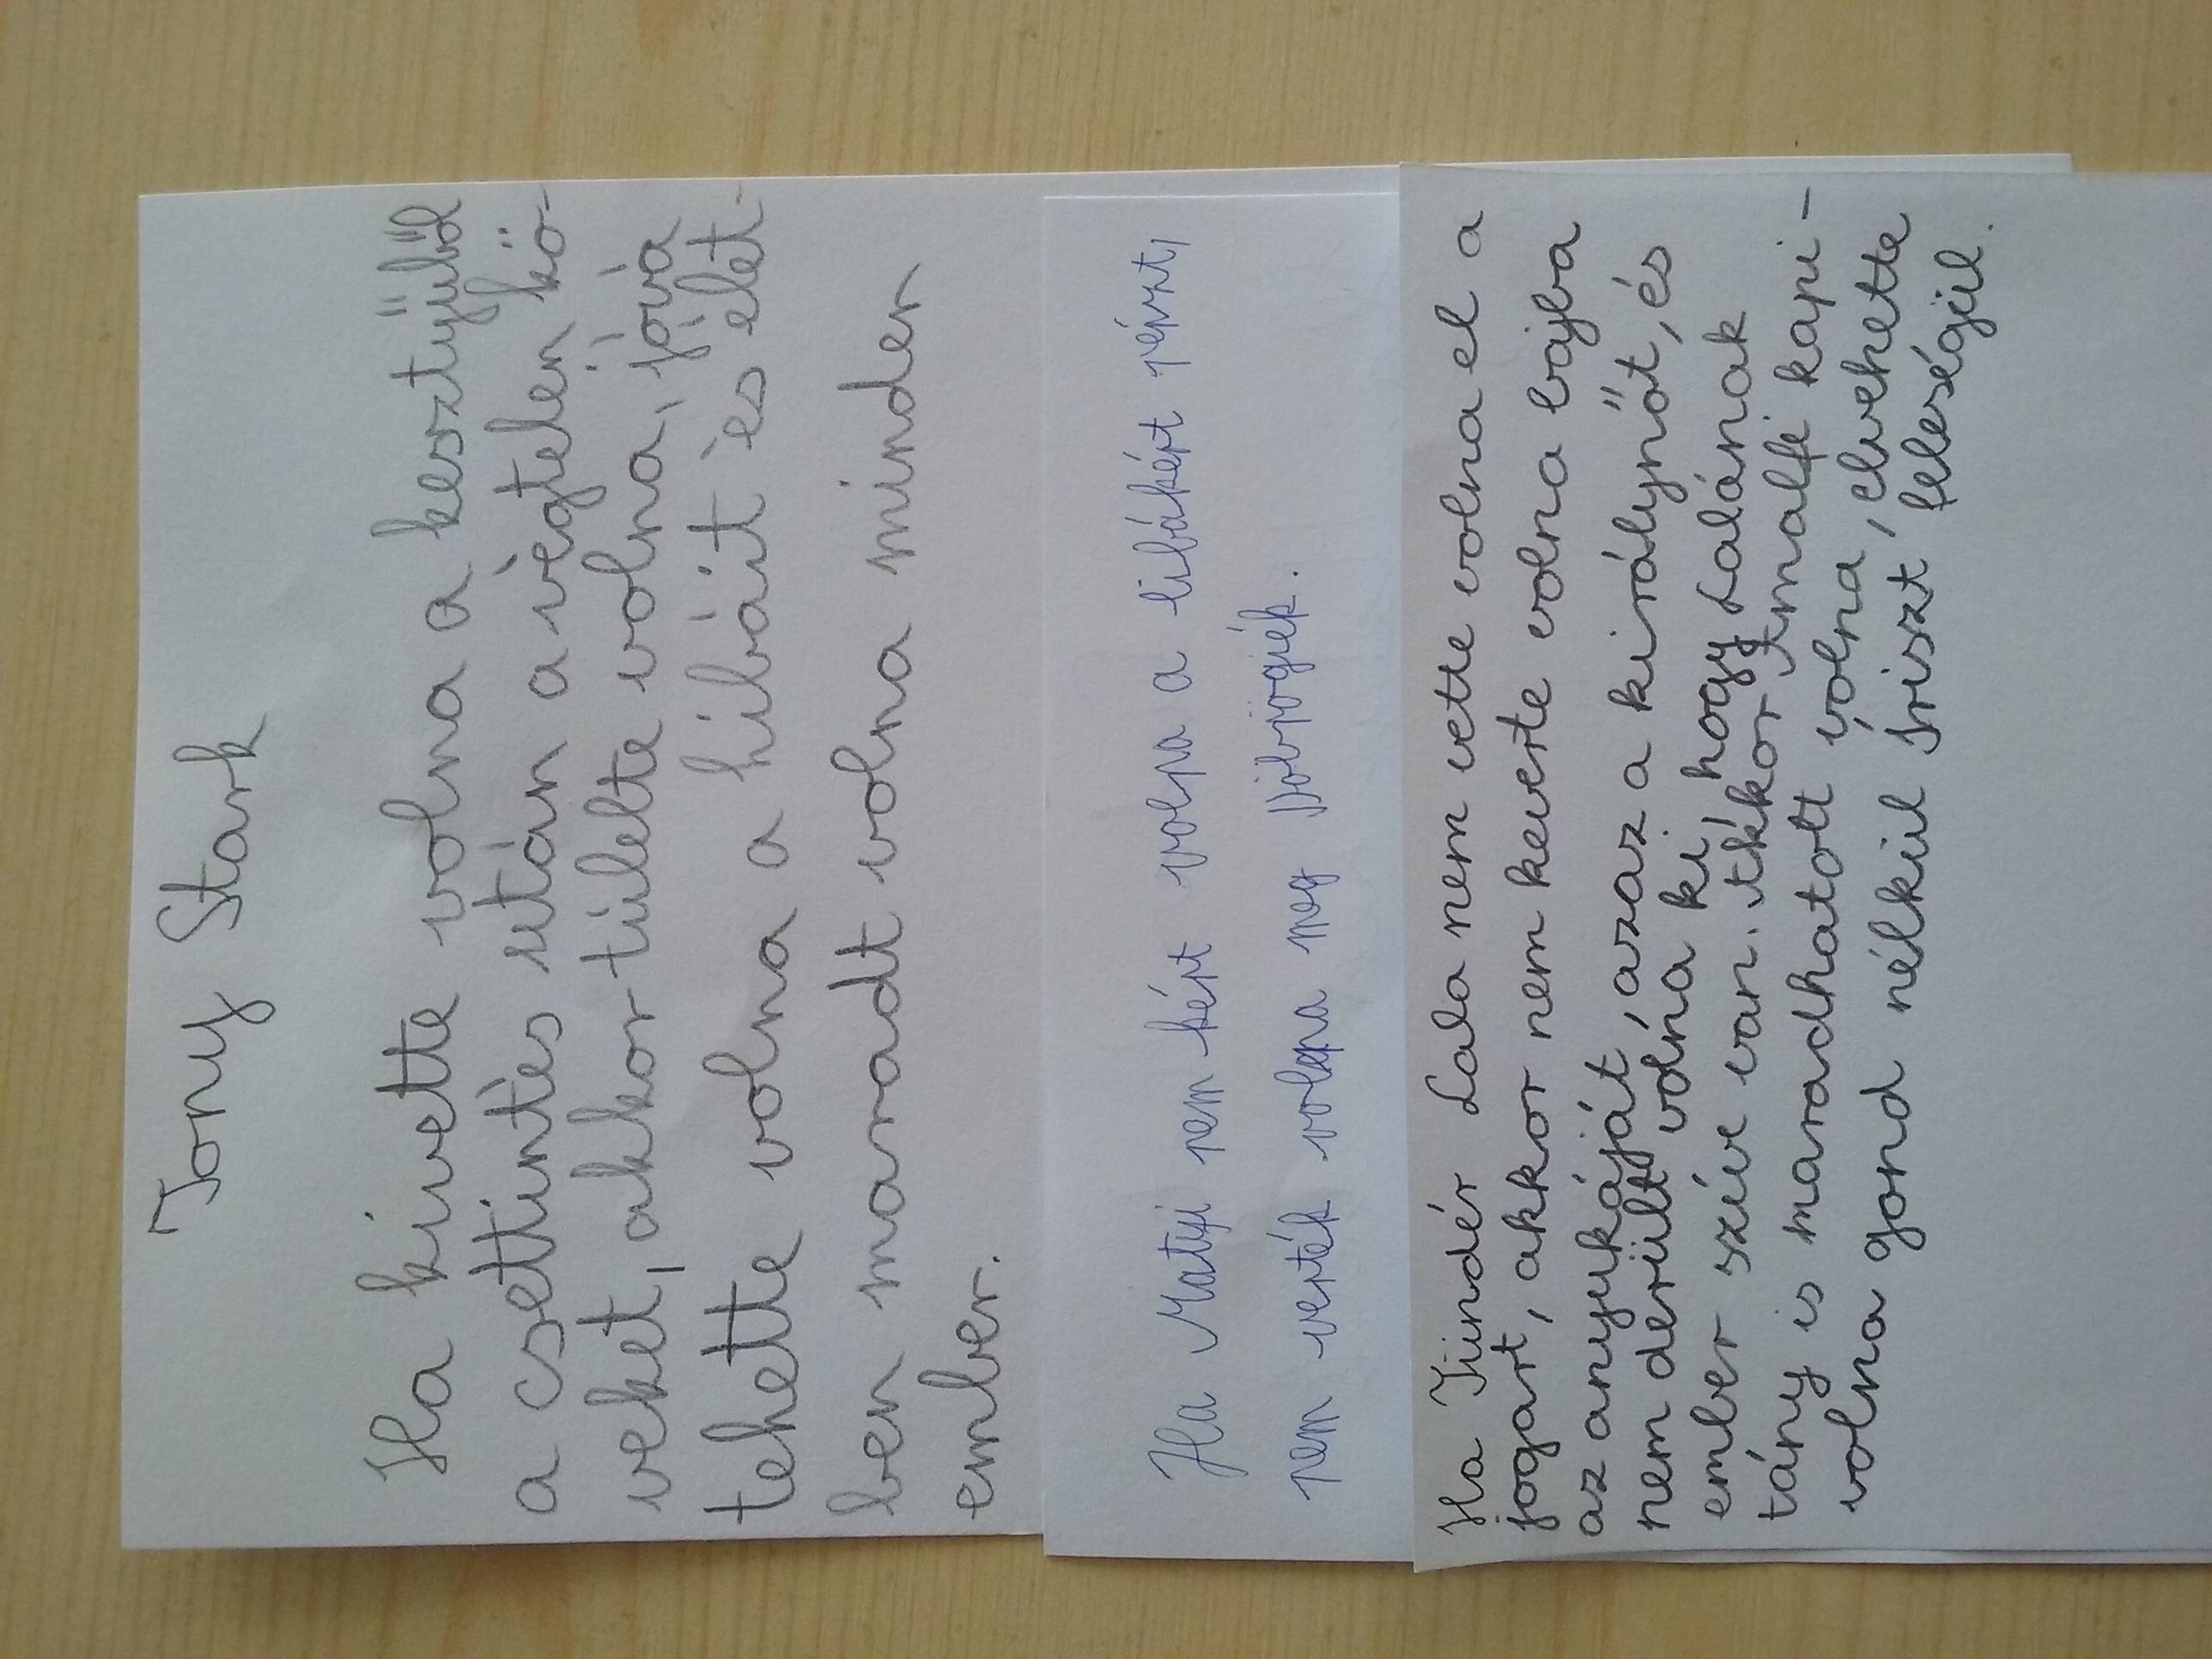 Tony Stark
Ha kivette volna a kesztyűből
a csettintés után a végtelen kö-
veket, akkor túlélte volna, jóvá
tehette volna a hibáit és élet-
ben maradt volna minden
ember.
Ha Matyi nem kért volna a libákért pénzt,
nem verték volna meg Döbrögiék.
Ha Tündér Lala nem vette volna el a
jogart, akkor nem keverte volna bajba
az anyukáját, azaz a királynőt, és
nem derült volna ki, hogy Lalának
ember szíve van. Akkor Amalfi kapi-
tány is maradhatott volna, elvehette
volna gond nélkül Íriszt feleségül.